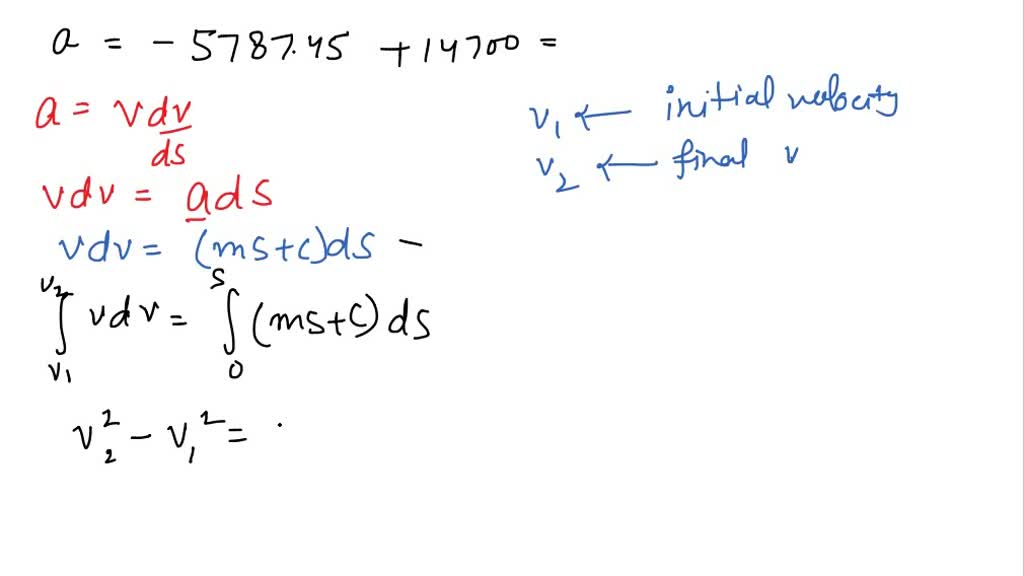 a = - 5787.45 + 14700 =
a = vdv/ds
v1 ← initial velocity
v2 ← final v
vdv = ads
vdv = (ms+c)ds -
∫_{v1}^{v2} vdv = ∫_0^s (ms+c) ds
v2² - v1² = .